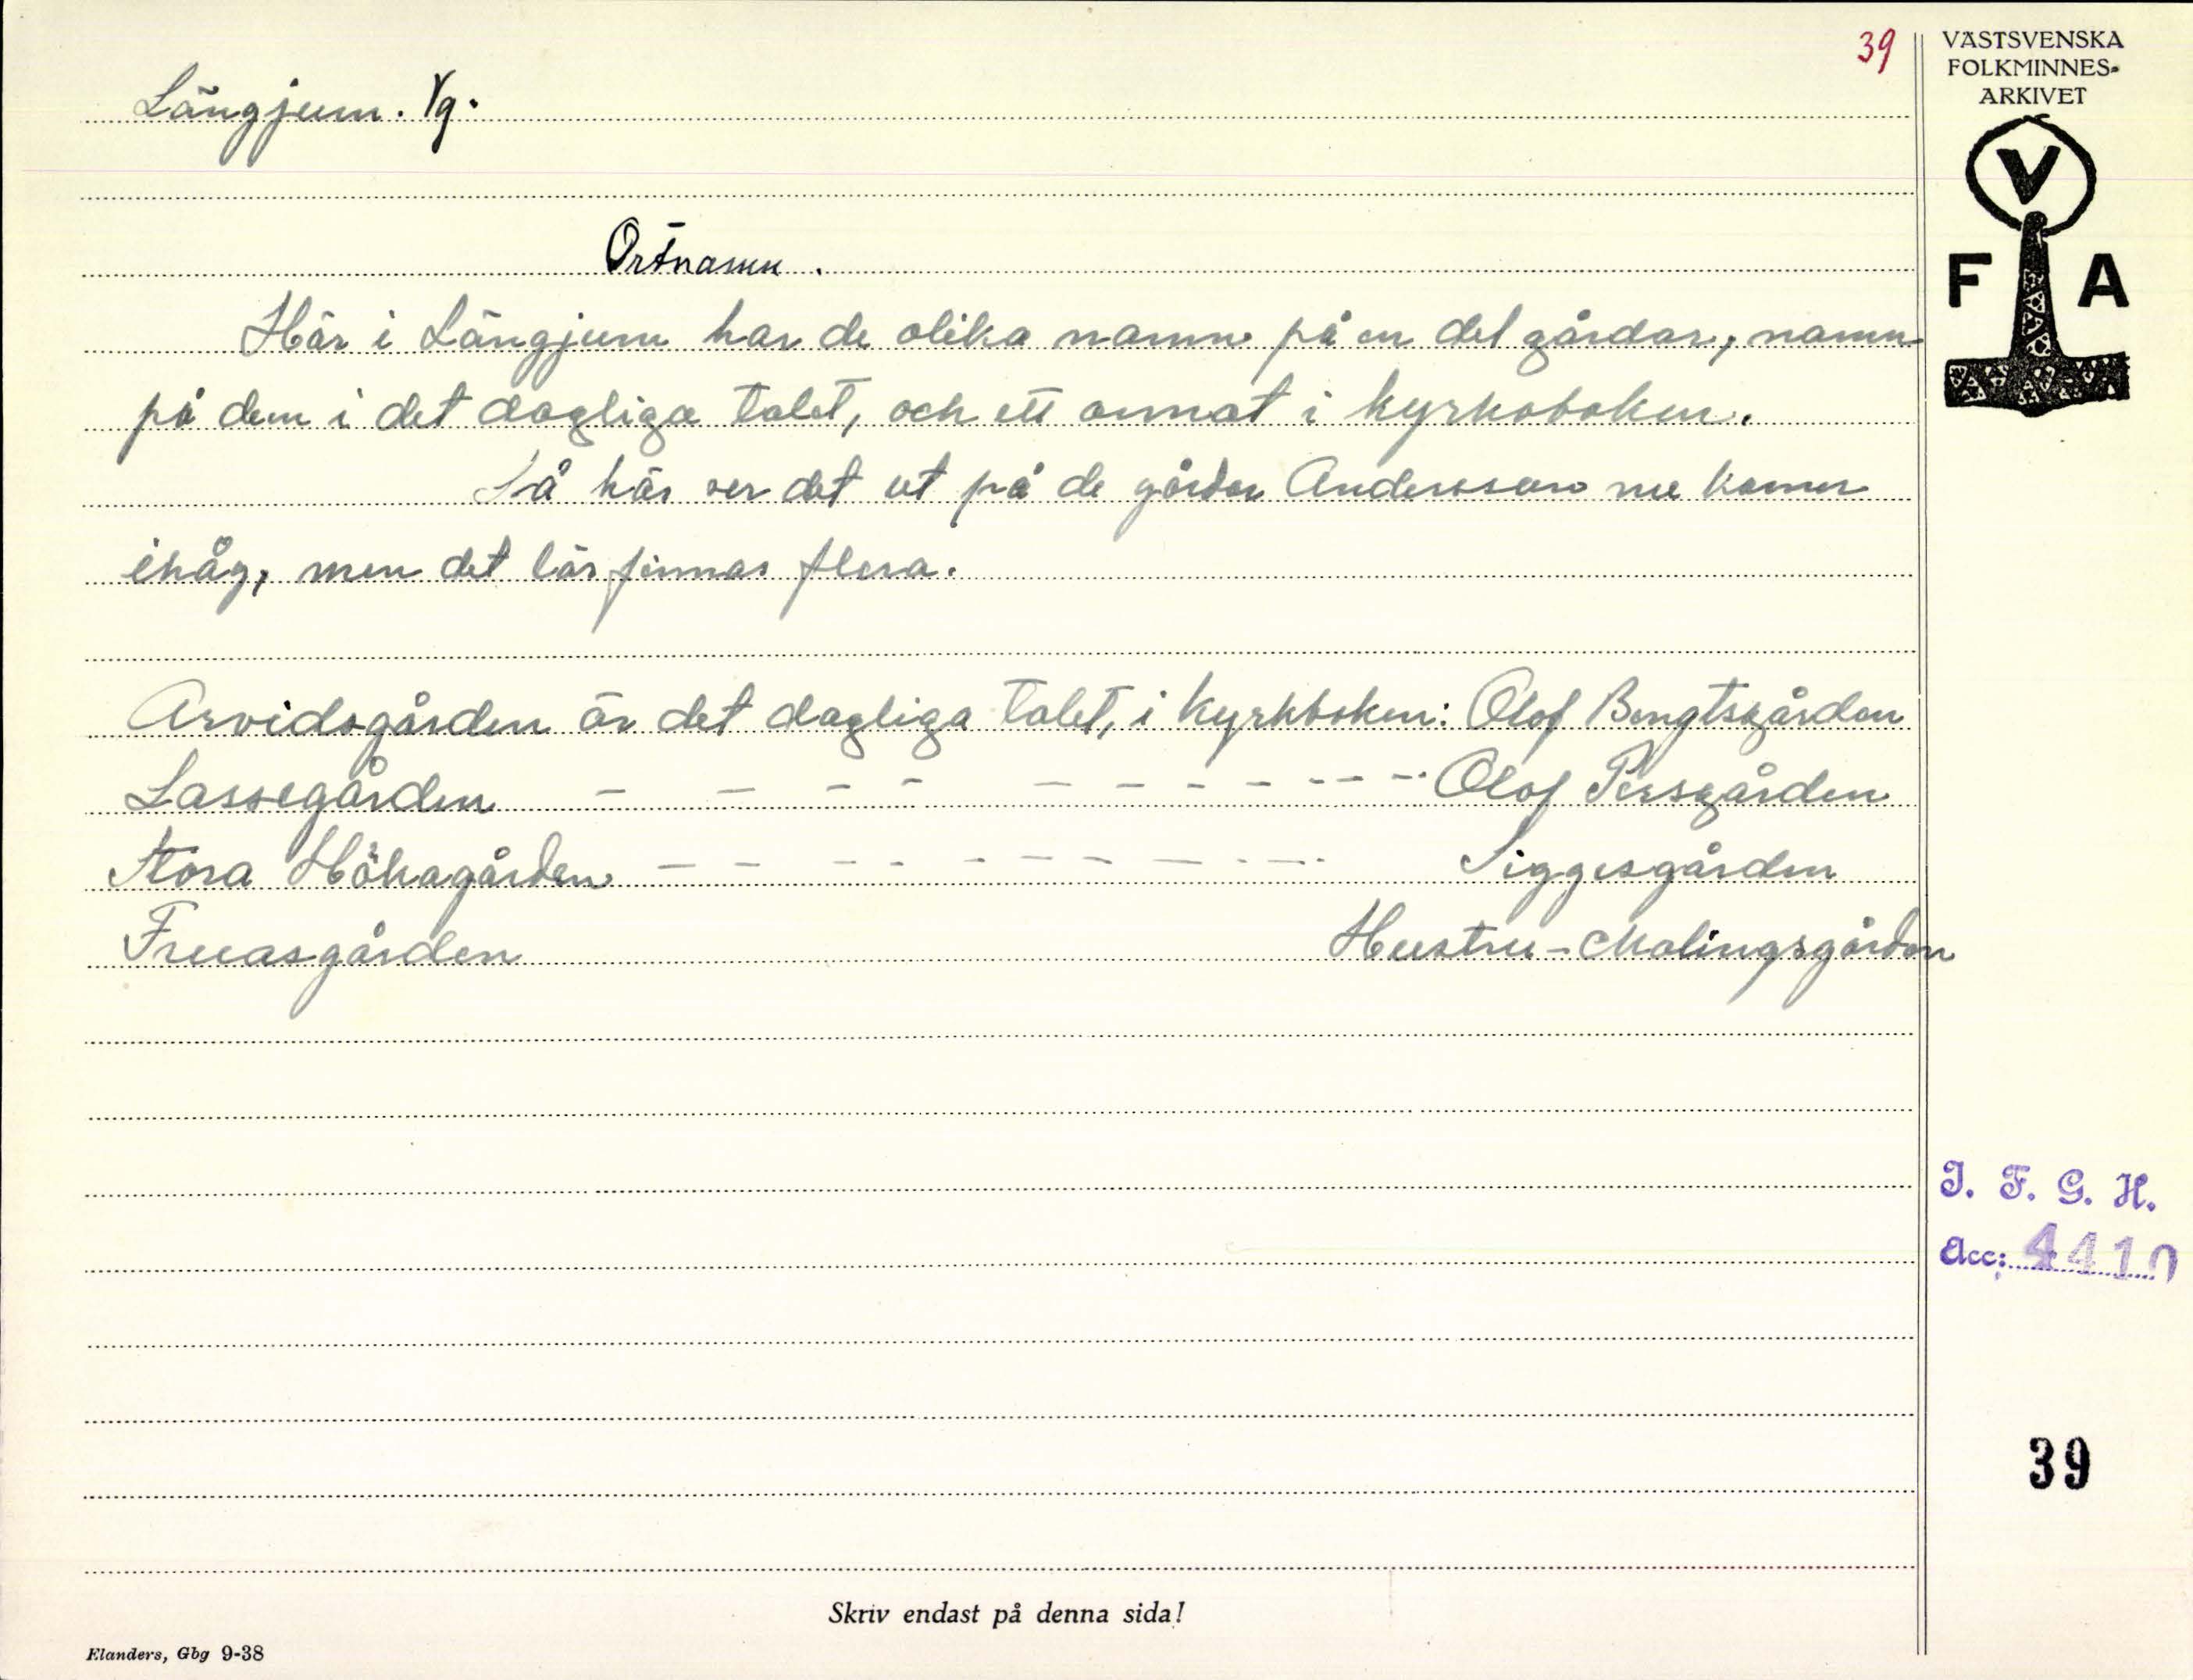 39
VÄSTSVENSKA
FOLKMINNES-
ARKIVET
V
F A
Längjum. Vg.
Ortnamn.
Här i Längjum har de olika namn på en del gårdar, namn
på dem i det dagliga talet, och ett annat i kyrkoboken.
Så här ser det ut på de gårdar Andersson nu komer
ihåg, men det lär finnas flera.
Arvidsgården är det dagliga talet, i kyrkboken: Olof Bengtsgården
Lassegården - - - - - - - - - - - - Olof Persgården
Stora Hökagården - - - - - - - - - - Siggesgården
Fruasgården Hustru-Malingsgården
I. F. G. H.
Acc: 4410
39
Skriv endast på denna sida!
Elanders, Gbg 9-38